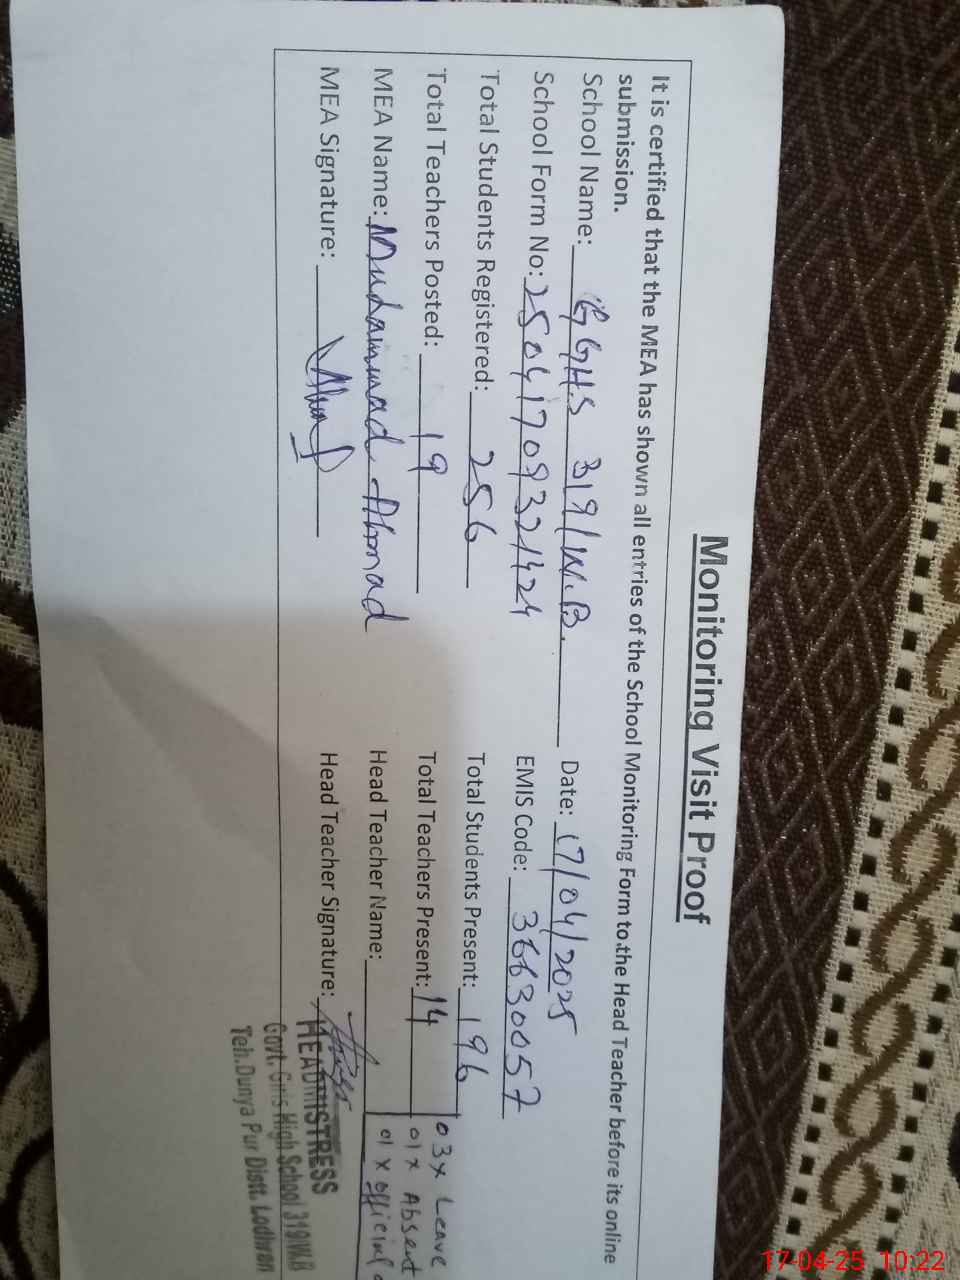 Monitoring Visit Proof
It is certified that the MEA has shown all entries of the School Monitoring Form to the Head Teacher before its online
submission.
School Name: GGHS 319/W.B. Date: 17/04/2025
School Form No: 25041709321424 EMIS Code: 36630057
Total Students Registered: 256 Total Students Present: 196
Total Teachers Posted: 19 Total Teachers Present: 14
03x Leave
01x Absent
01x official
MEA Name: Muhammad Ahmad Head Teacher Name:
MEA Signature: Head Teacher Signature:
HEADMISTRESS
Govt. Girls High School 319W.B
Teh. Dunya Pur Distt. Lodhran
17-04-25 10:22